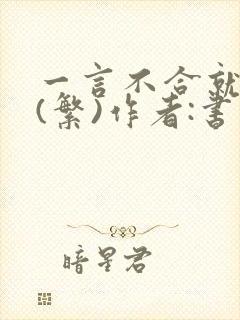 一言不合就
(繁)作者:書
暗星君